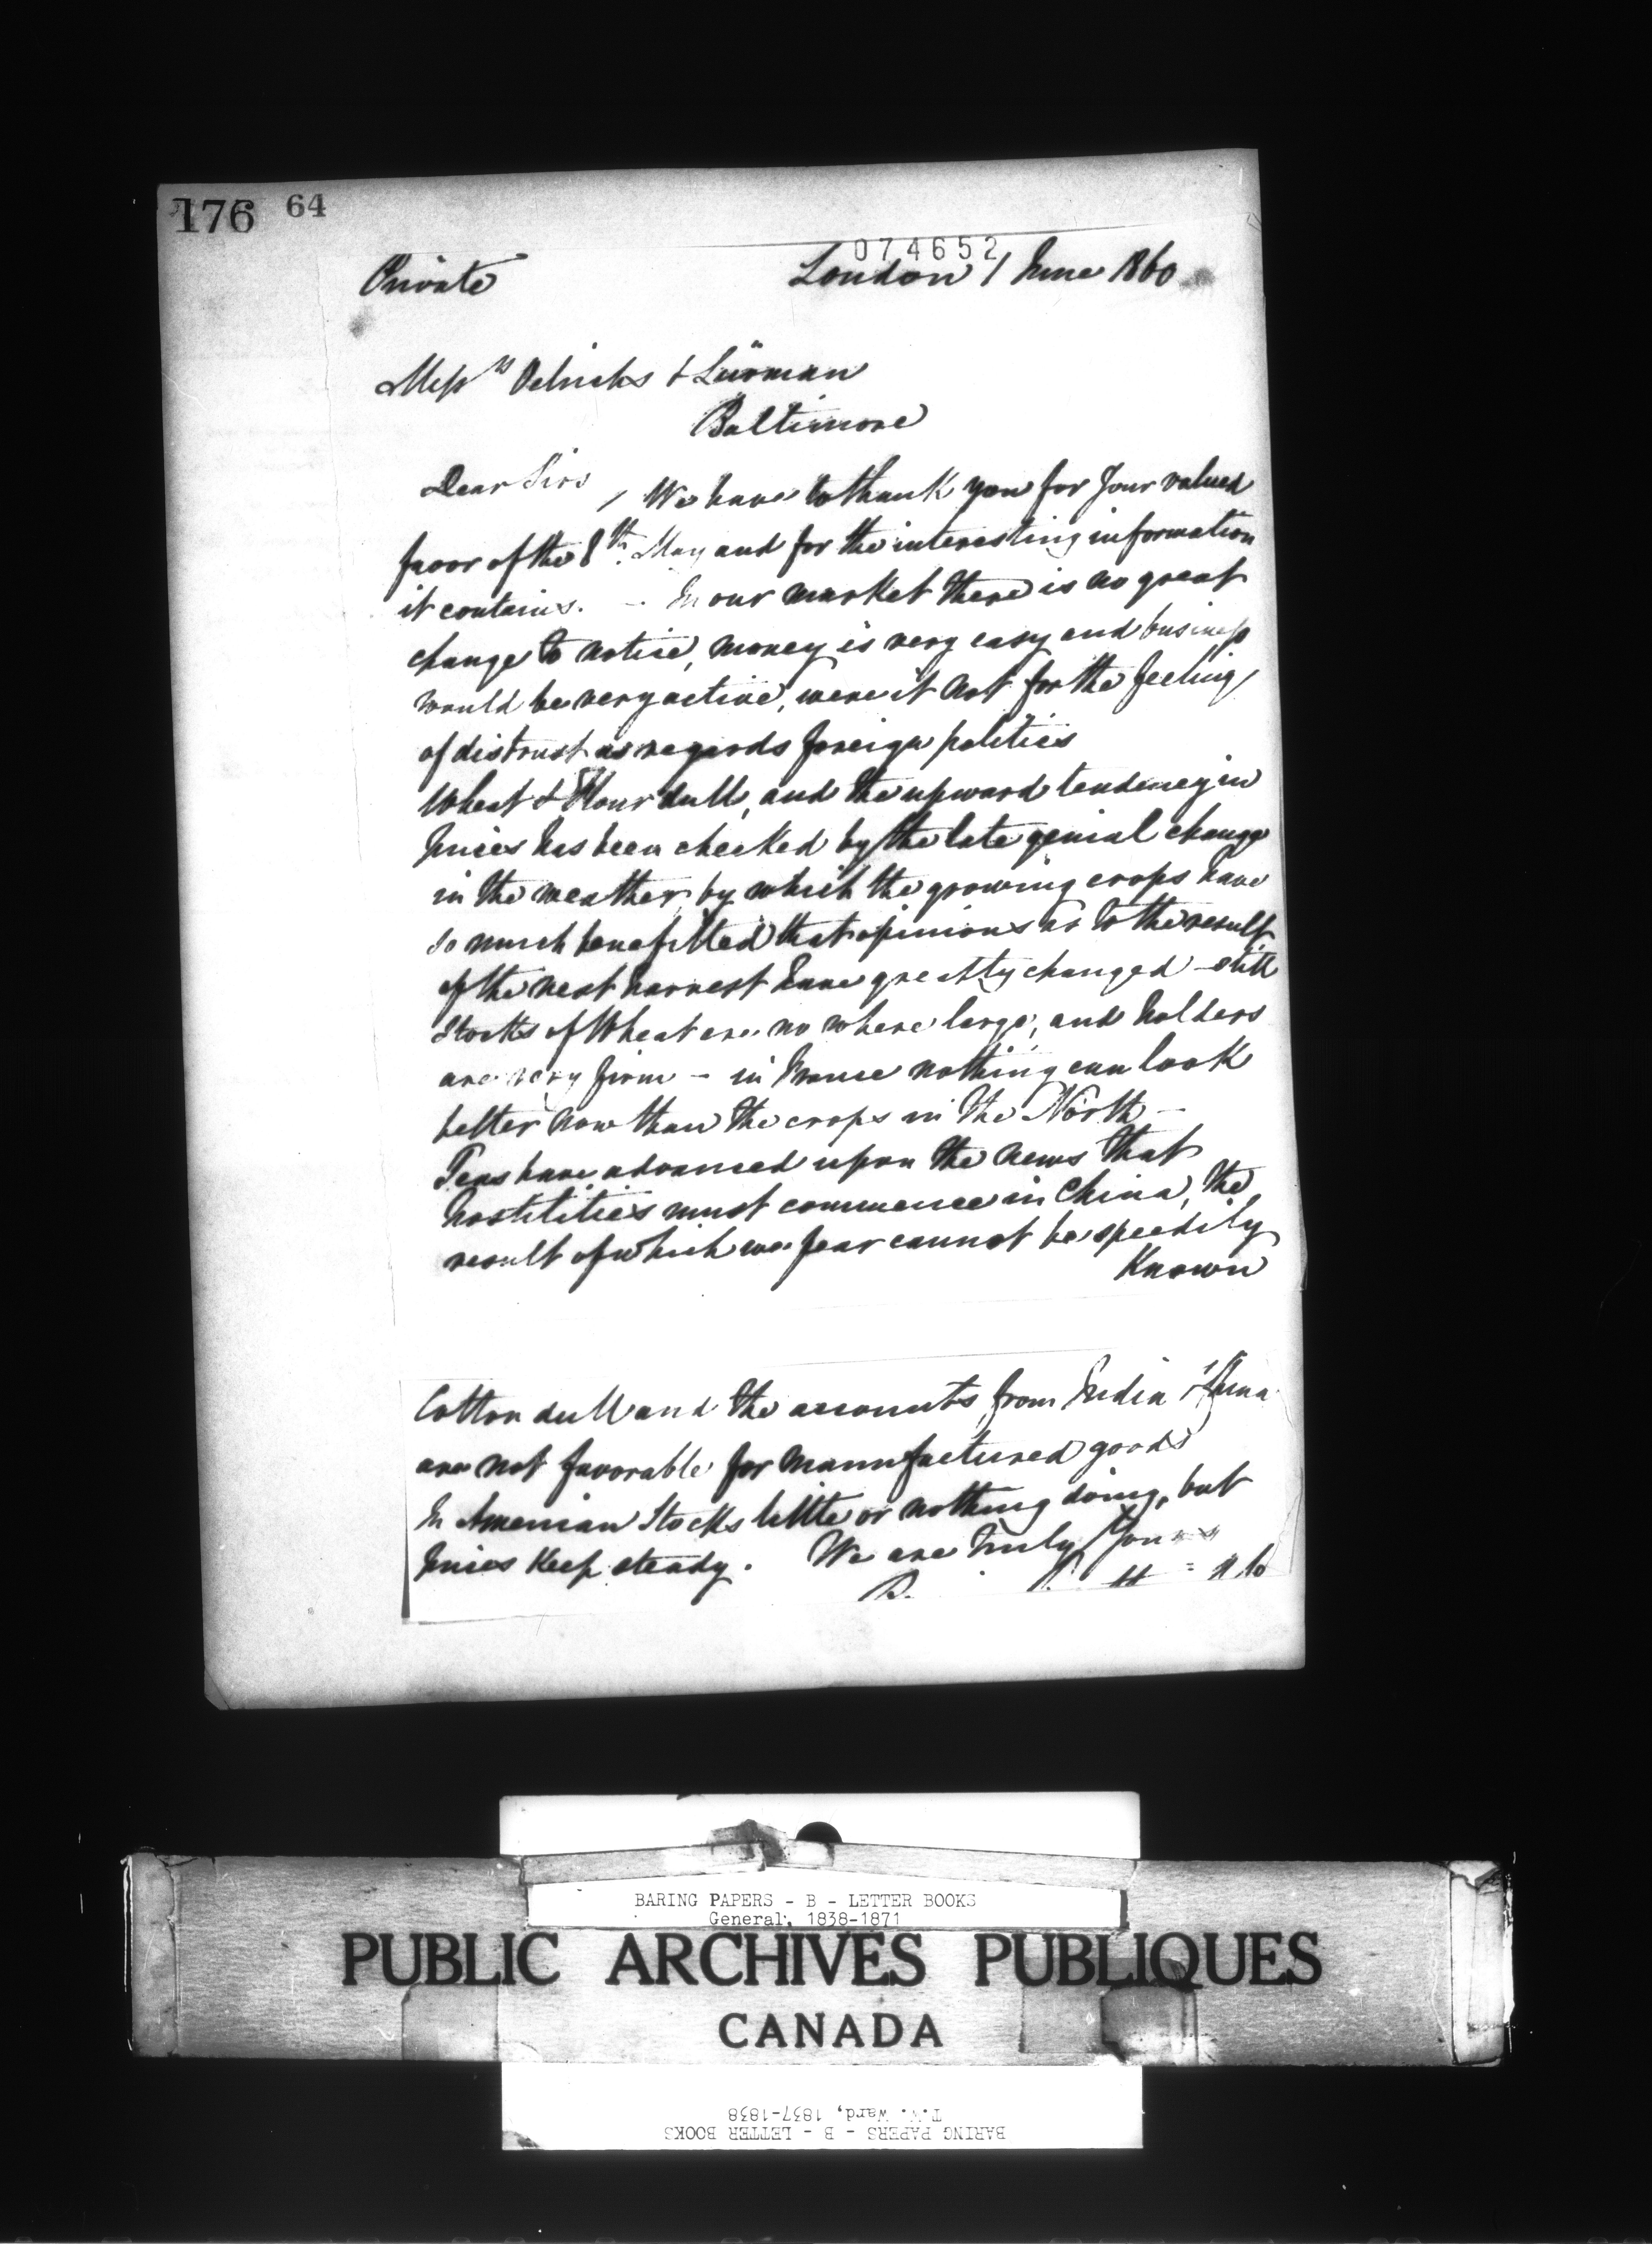 176 64
074652
Private London 1 June 1860
Messrs Oelrichs & Lürman
Baltimore
Dear Sirs, We have to thank you for your valued
favor of the 8th May and for the interesting information
it contains. - In our market there is no great
change to notice, money is very easy and business
would be very active, were it not for the feeling
of distrust as regards foreign politics
Wheat & Flour dull, and the upward tendency in
prices has been checked by the late genial change
in the weather, by which the growing crops have
so much benefitted that opinions as to the result
of the next harvest have greatly changed - still
stocks of Wheat are no where large, and holders
are very firm - in France nothing can look
better now than the crops in the North -
Teas have advanced upon the news that
hostilities must commence in China, the
result of which we fear cannot be speedily
Known
Cotton dull and the accounts from India & China
are not favorable for manufactured goods
In American Stocks little or nothing doing, but
prices Keep steady. We are truly Yours
B.
BARING PAPERS - B - LETTER BOOKS
General, 1838-1871
PUBLIC ARCHIVES PUBLIQUES
CANADA
BARING PAPERS - B - LETTER BOOKS
T.W. Ward, 1837-1838